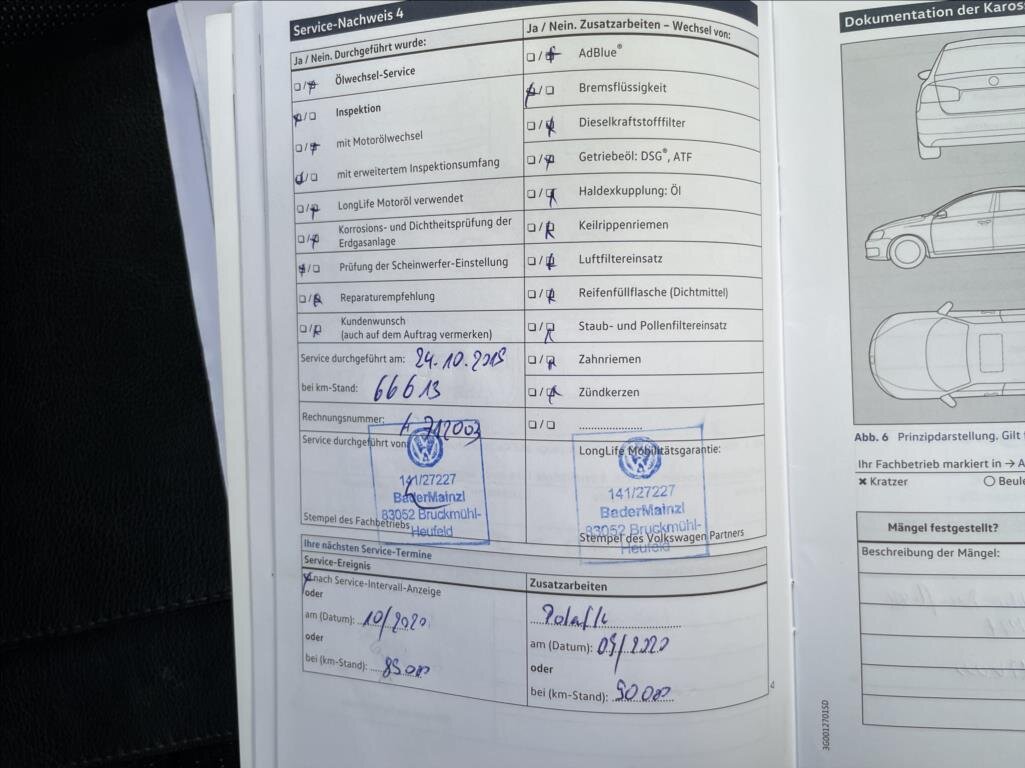 Service-Nachweis 4
Ja / Nein. Durchgeführt wurde:
Ölwechsel-Service
Inspektion
mit Motorölwechsel
mit erweitertem Inspektionsumfang
LongLife Motoröl verwendet
Korrosions- und Dichtheitsprüfung der
Erdgasanlage
Prüfung der Scheinwerfer-Einstellung
Reparaturempfehlung
Kundenwunsch
(auch auf dem Auftrag vermerken)
Service durchgeführt am: 24.10.2019
bei km-Stand: 66613
Rechnungsnummer: 712003
Service durchgeführt von
141/27227
BaderMainzl
83052 Bruckmühl-
Heufeld
Stempel des Fachbetriebs
Ja / Nein. Zusatzarbeiten – Wechsel von:
AdBlue®
Bremsflüssigkeit
Dieselkraftstofffilter
Getriebeöl: DSG®, ATF
Haldexkupplung: Öl
Keilrippenriemen
Luftfiltereinsatz
Reifenfüllflasche (Dichtmittel)
Staub- und Pollenfiltereinsatz
Zahnriemen
Zündkerzen
LongLife Mobilitätsgarantie:
141/27227
BaderMainzl
83052 Bruckmühl-
Heufeld
Stempel des Volkswagen Partners
Ihre nächsten Service-Termine
Service-Ereignis
nach Service-Intervall-Anzeige
oder
am (Datum): 10/2020
oder
bei (km-Stand):
Zusatzarbeiten
am (Datum): 09/2020
oder
bei (km-Stand): 90000
4
Dokumentation der Karos
Abb. 6 Prinzipdarstellung. Gilt
Ihr Fachbetrieb markiert in → A
✖ Kratzer ○ Beule
Mängel festgestellt?
Beschreibung der Mängel:
3G0012701SD